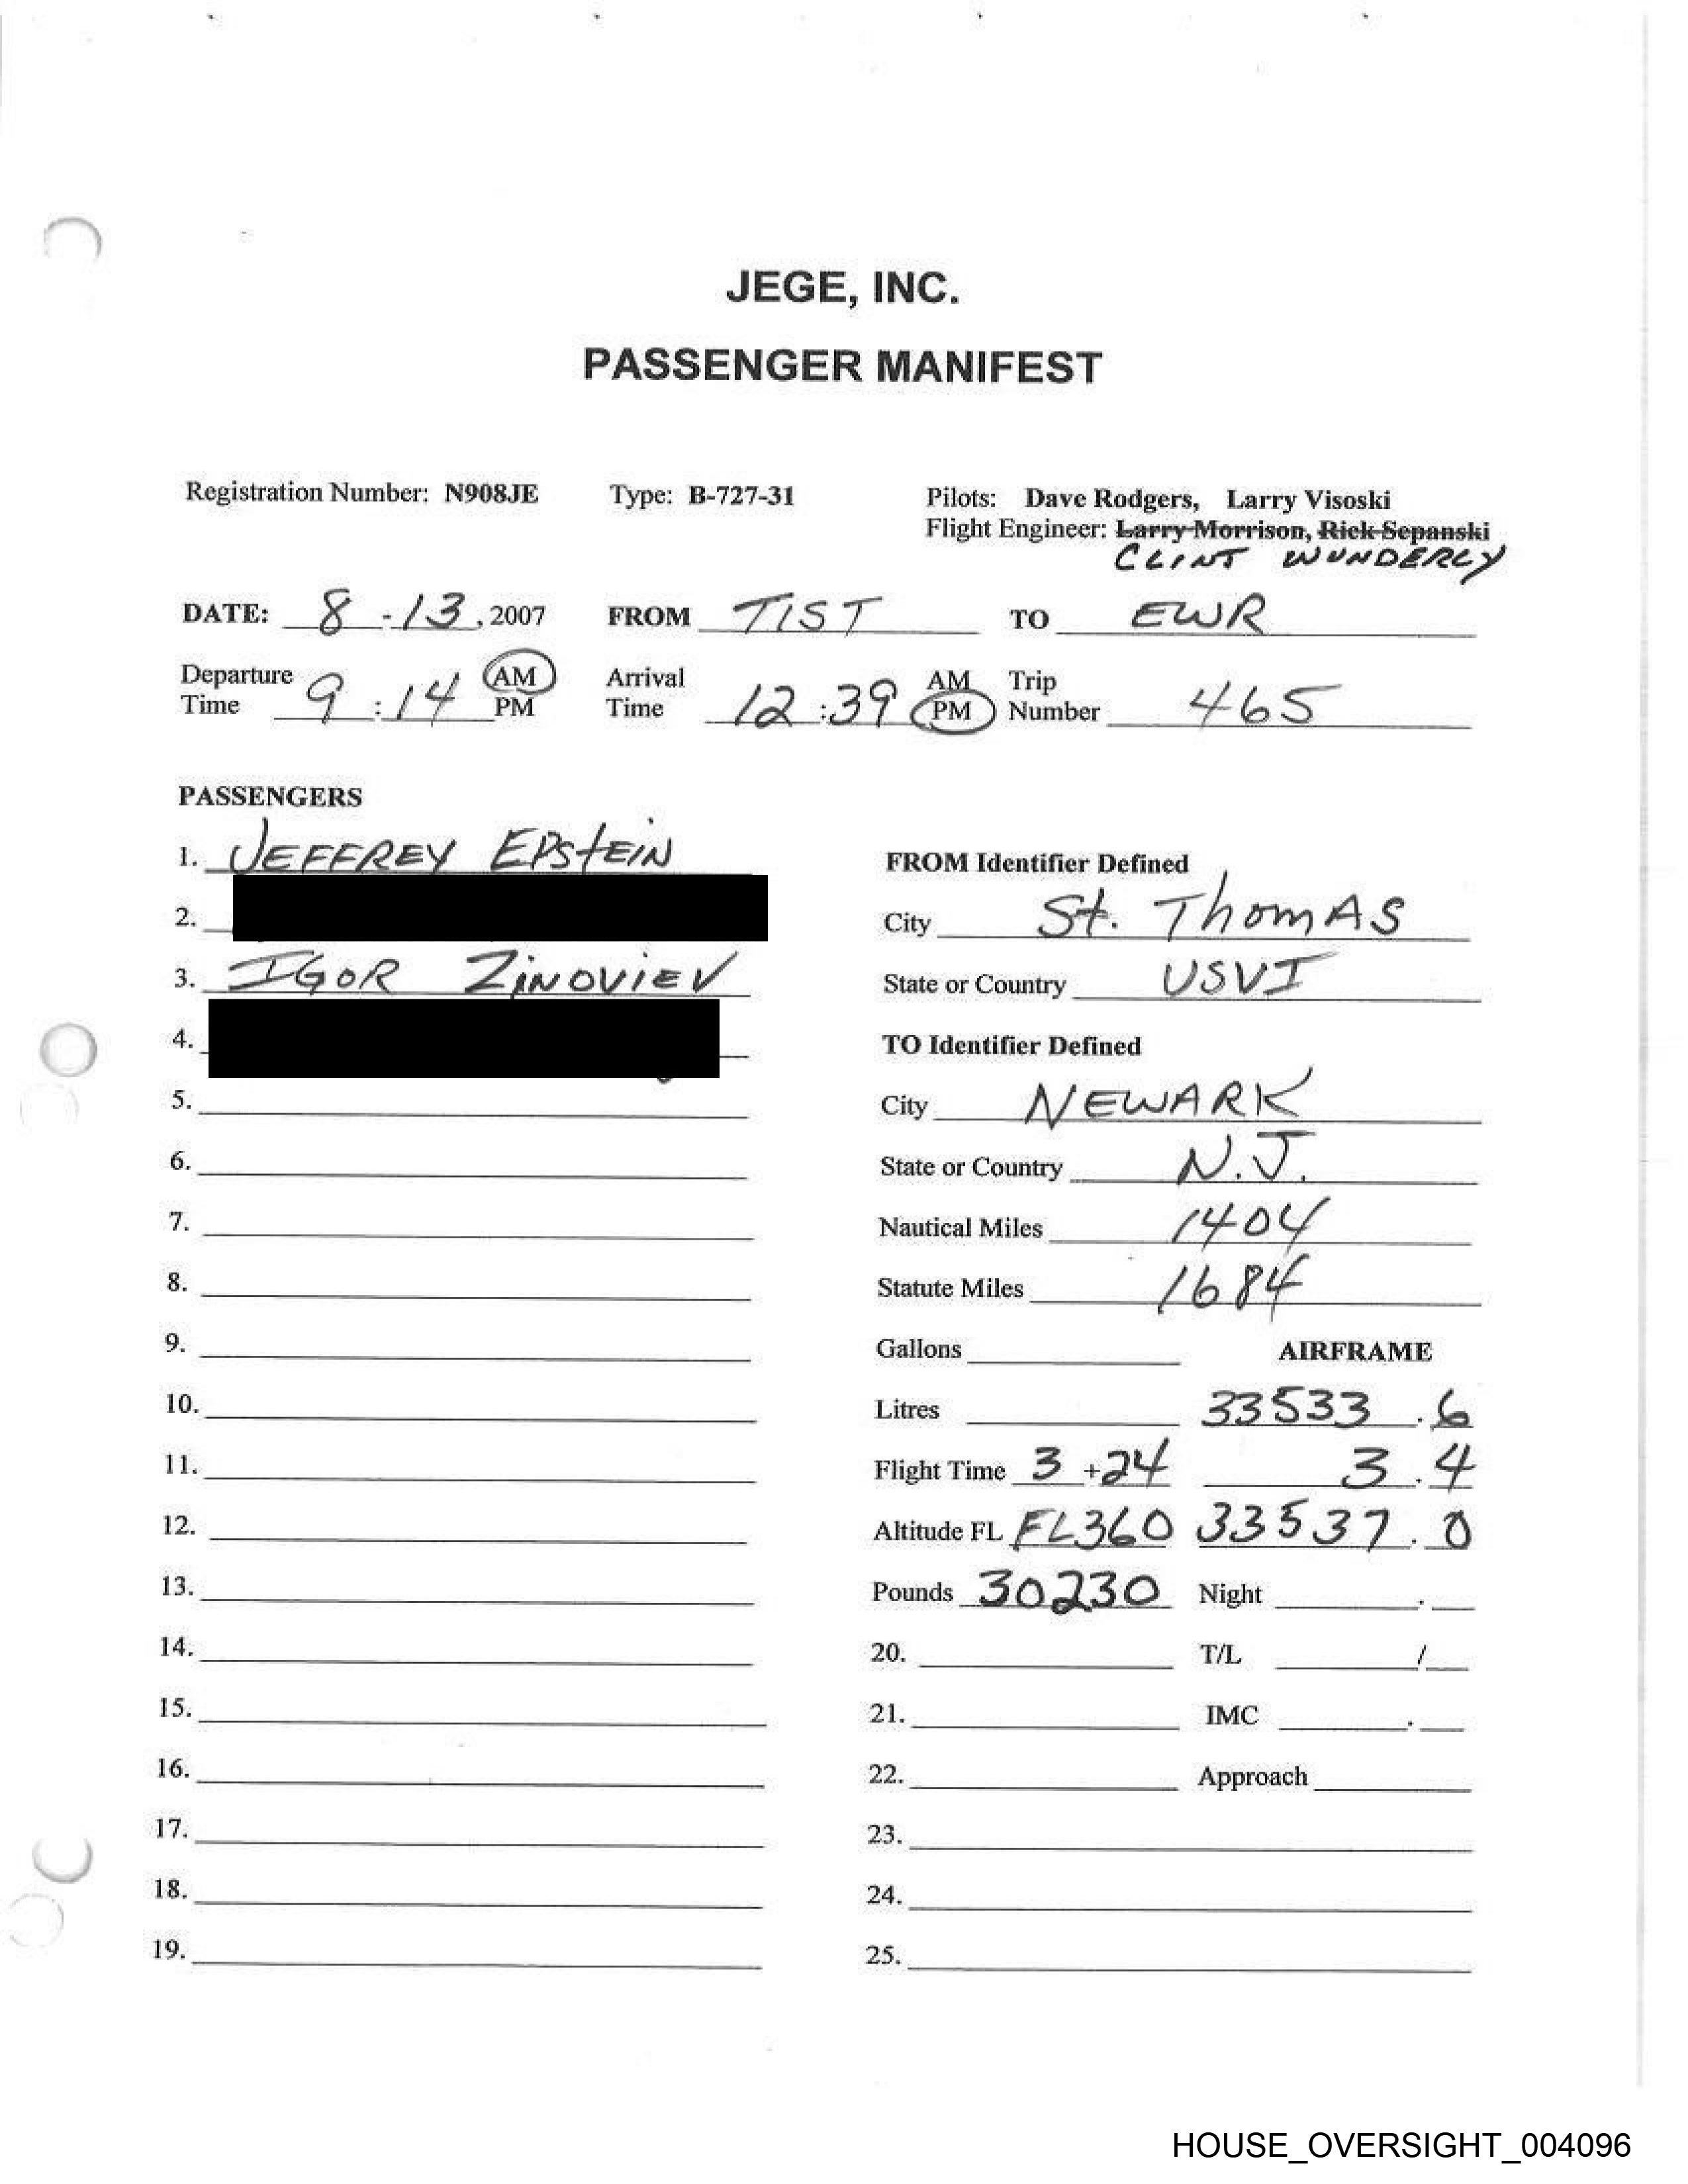 JEGE, INC.
PASSENGER MANIFEST
Registration Number: N908JE Type: B-727-31 Pilots: Dave Rodgers, Larry Visoski
Flight Engineer: Larry Morrison, Rick Sepanski
CLINT WUNDERLY
DATE: 8-13, 2007 FROM TIST TO EWR
Departure Time 9:14 AM PM Arrival Time 12:39 AM PM Trip Number 465
PASSENGERS
1. JEFFREY EPSTEIN
2.
3. IGOR ZINOVIEV
4.
5.
6.
7.
8.
9.
10.
11.
12.
13.
14.
15.
16.
17.
18.
19.
FROM Identifier Defined
City St. ThomAS
State or Country USVI
TO Identifier Defined
City NEWARK
State or Country N.J.
Nautical Miles 1404
Statute Miles 1684
Gallons AIRFRAME
Litres 33533.6
Flight Time 3+24 3.4
Altitude FL FL360 33537.0
Pounds 30230 Night .
20. T/L /
21. IMC .
22. Approach
23.
24.
25.
HOUSE_OVERSIGHT_004096